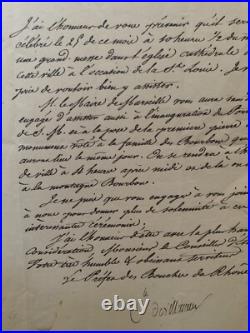 J'ai l'honneur de vous prévenir qu'il ser
célébré le 25 de ce mois à 10 heures ½ du m
une grand messe dans l'église cathédrale
cette ville à l'occasion de la St. Louis. Je
prie de vouloir bien y assister.
M. le Maire de Marseille vous aura san
engagé d'assister aussi à l'inauguration de
de S. M. et à la pose de la première pierre
monument voté à la famille des Bourbons
aura lieu le même jour. On se rendra à l'h
de ville à 4 heures après midi et de là on se
à la montagne Bourbon.
Je ne puis que vous engager à vous joind
à nous pour donner plus de solemnité à c
intéressante cérémonie.
J'ai l'honneur d'être avec la plus hau
considération Monsieur le Conseiller d'
Votre très humble & obéissant serviteur
Le Préfet des Bouches du Rhône